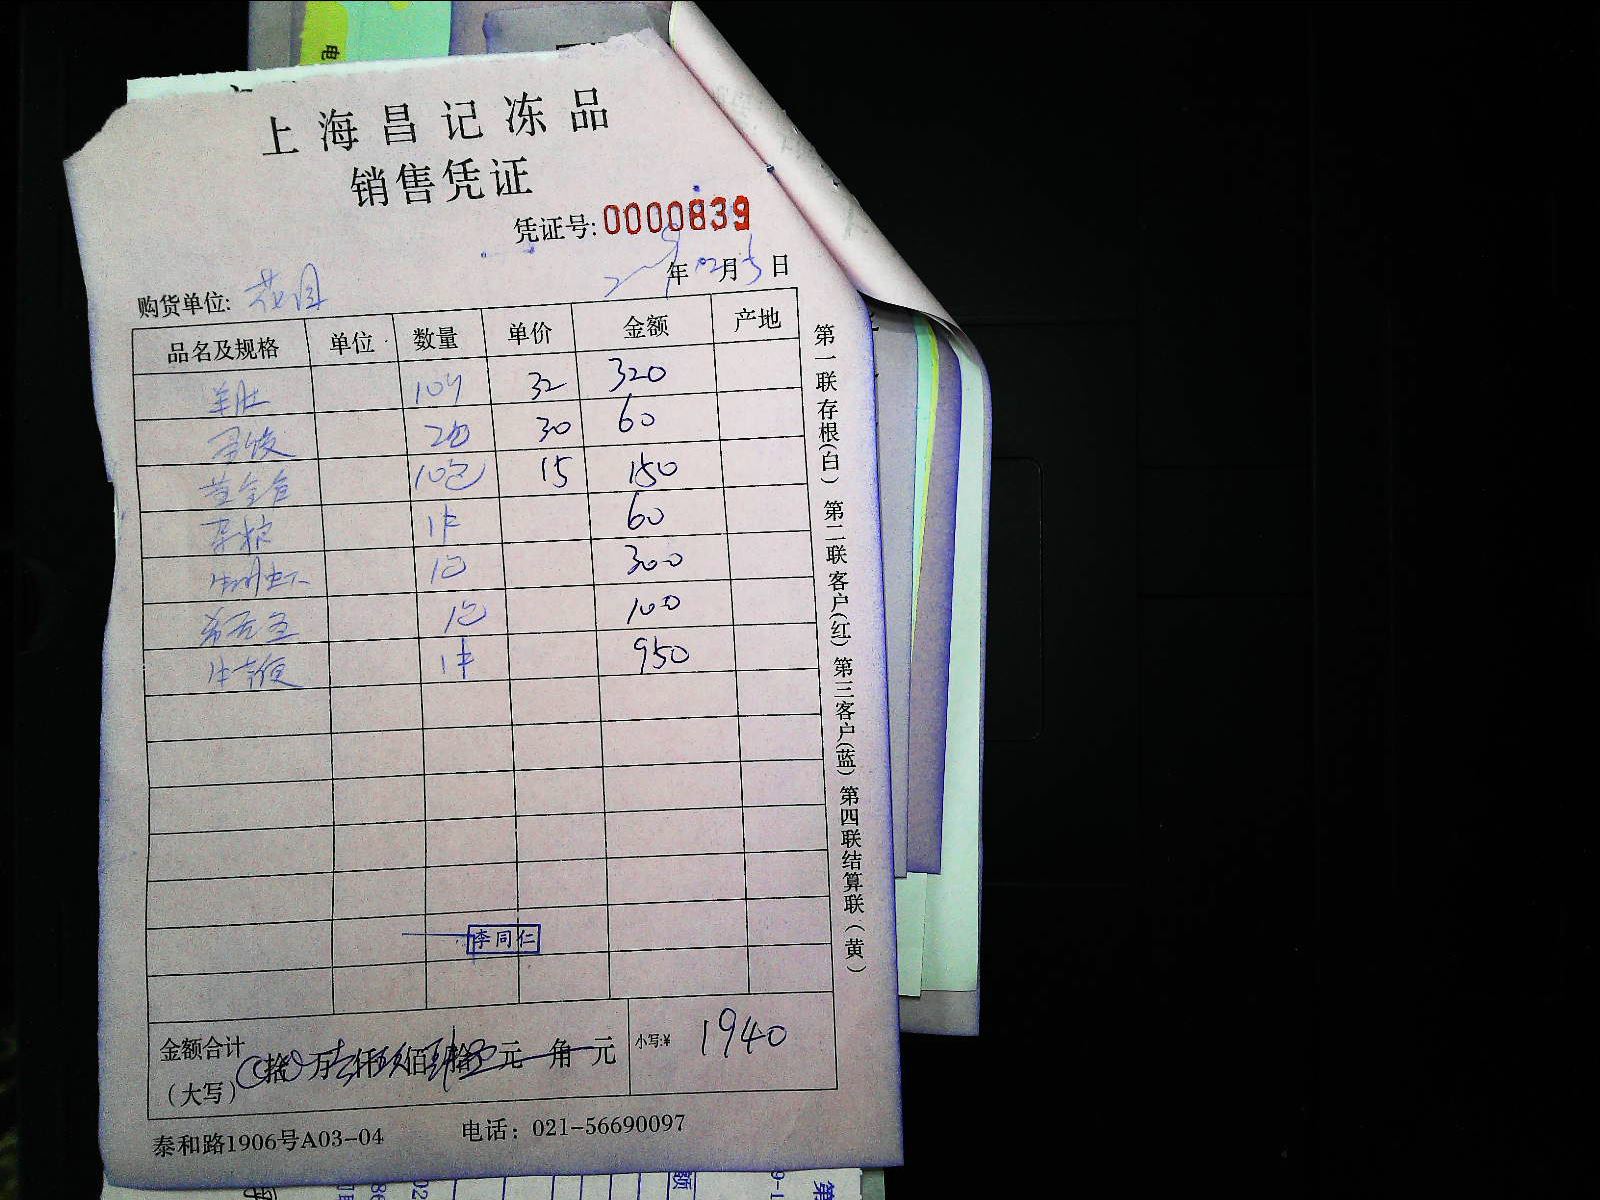 上海昌记冻品
销售凭证
凭证号: 0000839
年 02月 5日
购货单位: 花园
品名及规格 单位 数量 单价 金额 产地
羊肚 10 32 320
2包 30 60
黄金包 10包 15 150
杂粮 1件 60
1包 300
1包 100
1件 950
李同仁
金额合计 拾 万 仟 佰 拾 元 角 元 小写:¥ 1940
（大写）
泰和路1906号A03-04 电话：021-56690097
第一联存根(白) 第二联客户(红) 第三客户(蓝) 第四联结算联(黄)